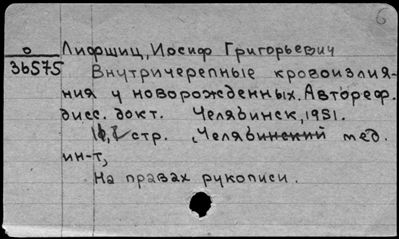 6
о Лифшиц, Иосиф Григорьевич
36575
Внутричерепные кровоизлия-
ния у новорожденных. Автореф.
дисс. докт. Челябинск, 1951.
стр. (Челябинский мед.
ин-т,
На правах рукописи.